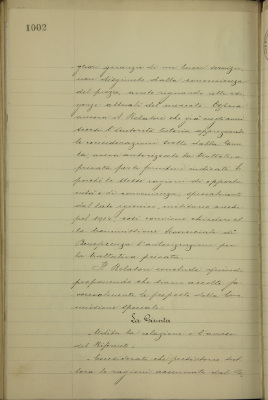 1002
gliere garanzia di un buon servizio
non disgiunta dalla convenienza
del prezzo, avuto riguardo alle esi-
genze attuali del mercato.
ancora il Relatore che già negli anni
decorsi l'Autorità tutoria apprezzando
le considerazioni svolte dalla Giun-
ta, aveva autorizzato la trattativa
privata per le forniture indicate e
poiché le stesse ragioni di opportu-
nità e di convenienza, specialmente
dal lato igienico, militano anche
pel 1912, così conviene chiedere al-
la Commissione Provinciale di
Beneficenza l'autorizzazione per
la trattativa privata.
Il Relatore conclude quindi
proponendo che venga accolta fa-
vorevolmente la proposta della Com-
missione speciale.
La Giunta
Udita la relazione e l'avviso
del Riferente;
Considerato che sussistono tut-
tora le ragioni accennate dal